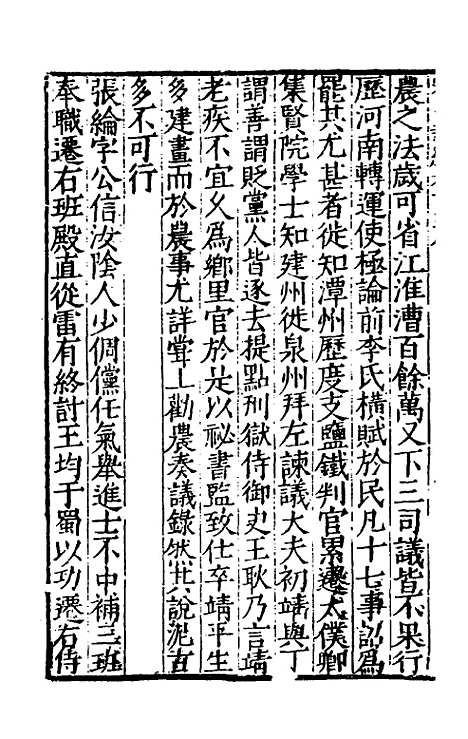 農之法歲可省江淮漕百餘萬又下三司議皆不果行
歷河南轉運使極論前李氏橫賦於民凡十七事詔爲
罷其尤甚者徙知潭州歷度支鹽鐵判官累遷太僕卿
集賢院學士知建州徙泉州拜左諫議大夫初靖與丁
謂善謂貶黨人皆逐去提點刑獄侍御史王耿乃言靖
老疾不宜久爲鄉里官於是以祕書監致仕卒靖平生
多建畫而於農事尤詳嘗上勸農奏議錄然其說泥古
多不可行
張綸字公信汝陰人少倜儻任氣舉進士不中補三班
奉職遷右班殿直從雷有終討王均于蜀以功遷右侍